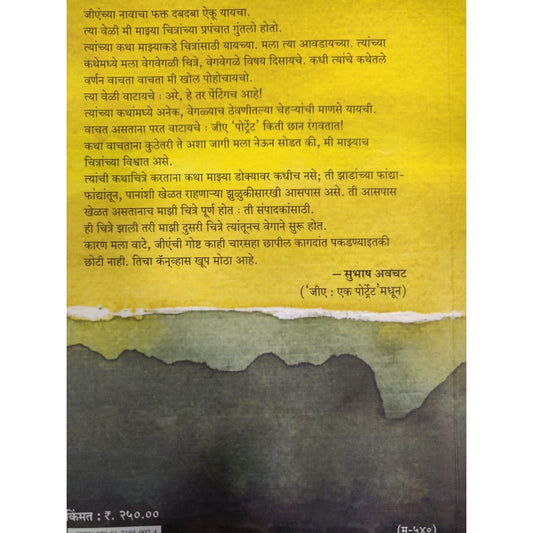 जीएंच्या नावाचा फक्त दबदबा ऐकू यायचा.
त्या वेळी मी माझ्या चित्रांच्या प्रपंचात गुंतलो होतो.
त्यांच्या कथा माझ्याकडे चित्रांसाठी यायच्या. मला त्या आवडायच्या. त्यांच्या
कथेमध्ये मला वेगवेगळी चित्रे, वेगवेगळे विषय दिसायचे. कधी त्यांचे कथेतले
वर्णन वाचता वाचता मी खोल पोहोचायचो.
त्या वेळी वाटायचे : अरे, हे तर पेंटिंगच आहे!
त्यांच्या कथांमध्ये अनेक, वेगळ्याच ठेवणीतल्या चेहऱ्यांची माणसे यायची.
वाचत असताना परत वाटायचे : जीए 'पोर्ट्रेट' किती छान रंगवतात!
कथा वाचताना कुठेतरी ते अशा जागी मला नेऊन सोडत की, मी माझ्याच
चित्रांच्या विश्वात असे.
त्यांची कथाचित्रे करताना कथा माझ्या डोक्यावर कधीच नसे; ती झाडांच्या फांद्या-
फांद्यांतून, पानांशी खेळत राहणाऱ्या झुळुकीसारखी आसपास असे. ती आसपास
खेळत असतानाच माझी चित्रे पूर्ण होत : ती संपादकांसाठी.
ही चित्रे झाली तरी माझी दुसरी चित्रे त्यांतूनच वेगाने सुरू होत.
कारण मला वाटे, जीएंची गोष्ट काही चारसहा छापील कागदांत पकडण्याइतकी
छोटी नाही. तिचा कॅन्व्हास खूप मोठा आहे.
– सुभाष अवचट
('जीए : एक पोर्ट्रेट'मधून)
किंमत : रु. २५०.००
(म-५४०)